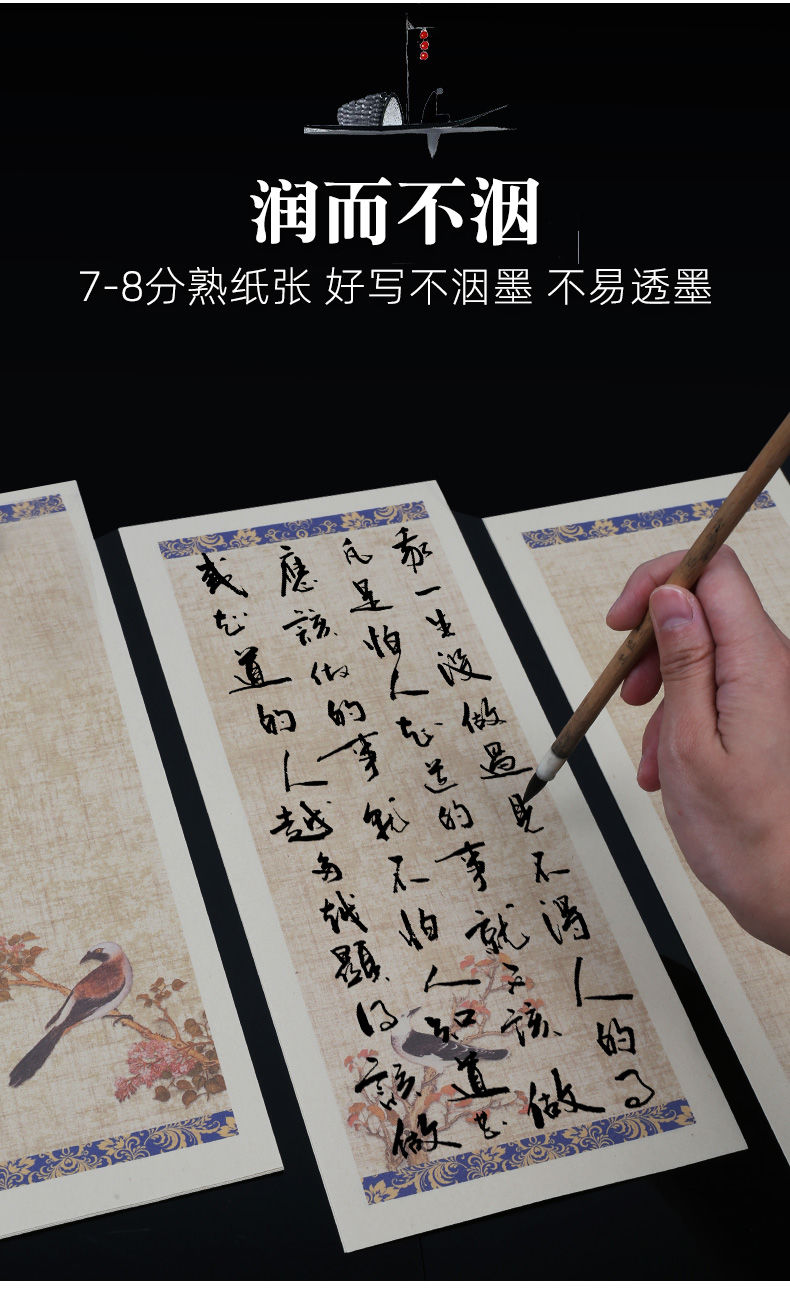 润而不洇
7-8分熟纸张 好写不洇墨 不易透墨
我一生没做過見不得人的事
凡是怕人知道的事就不該做
應該做的事就不怕人知道甚
或知道的人越多越顯得該做